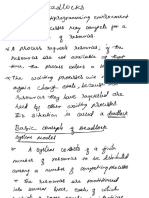 Deadlocks
multiprogramming environment
processes may compete for a
of resources.
A process request resources, if the
resources are not available at that
time, the process enters a
The waiting processes will
again change state because
resources they have requested are
held by other waiting processes.
This situation is called a deadlock
Basic concepts of Deadlock
System Model
A system consists of a finite
number of resources to be distributed
among a number of competing process
The resources are partitioned
into several types, each of which